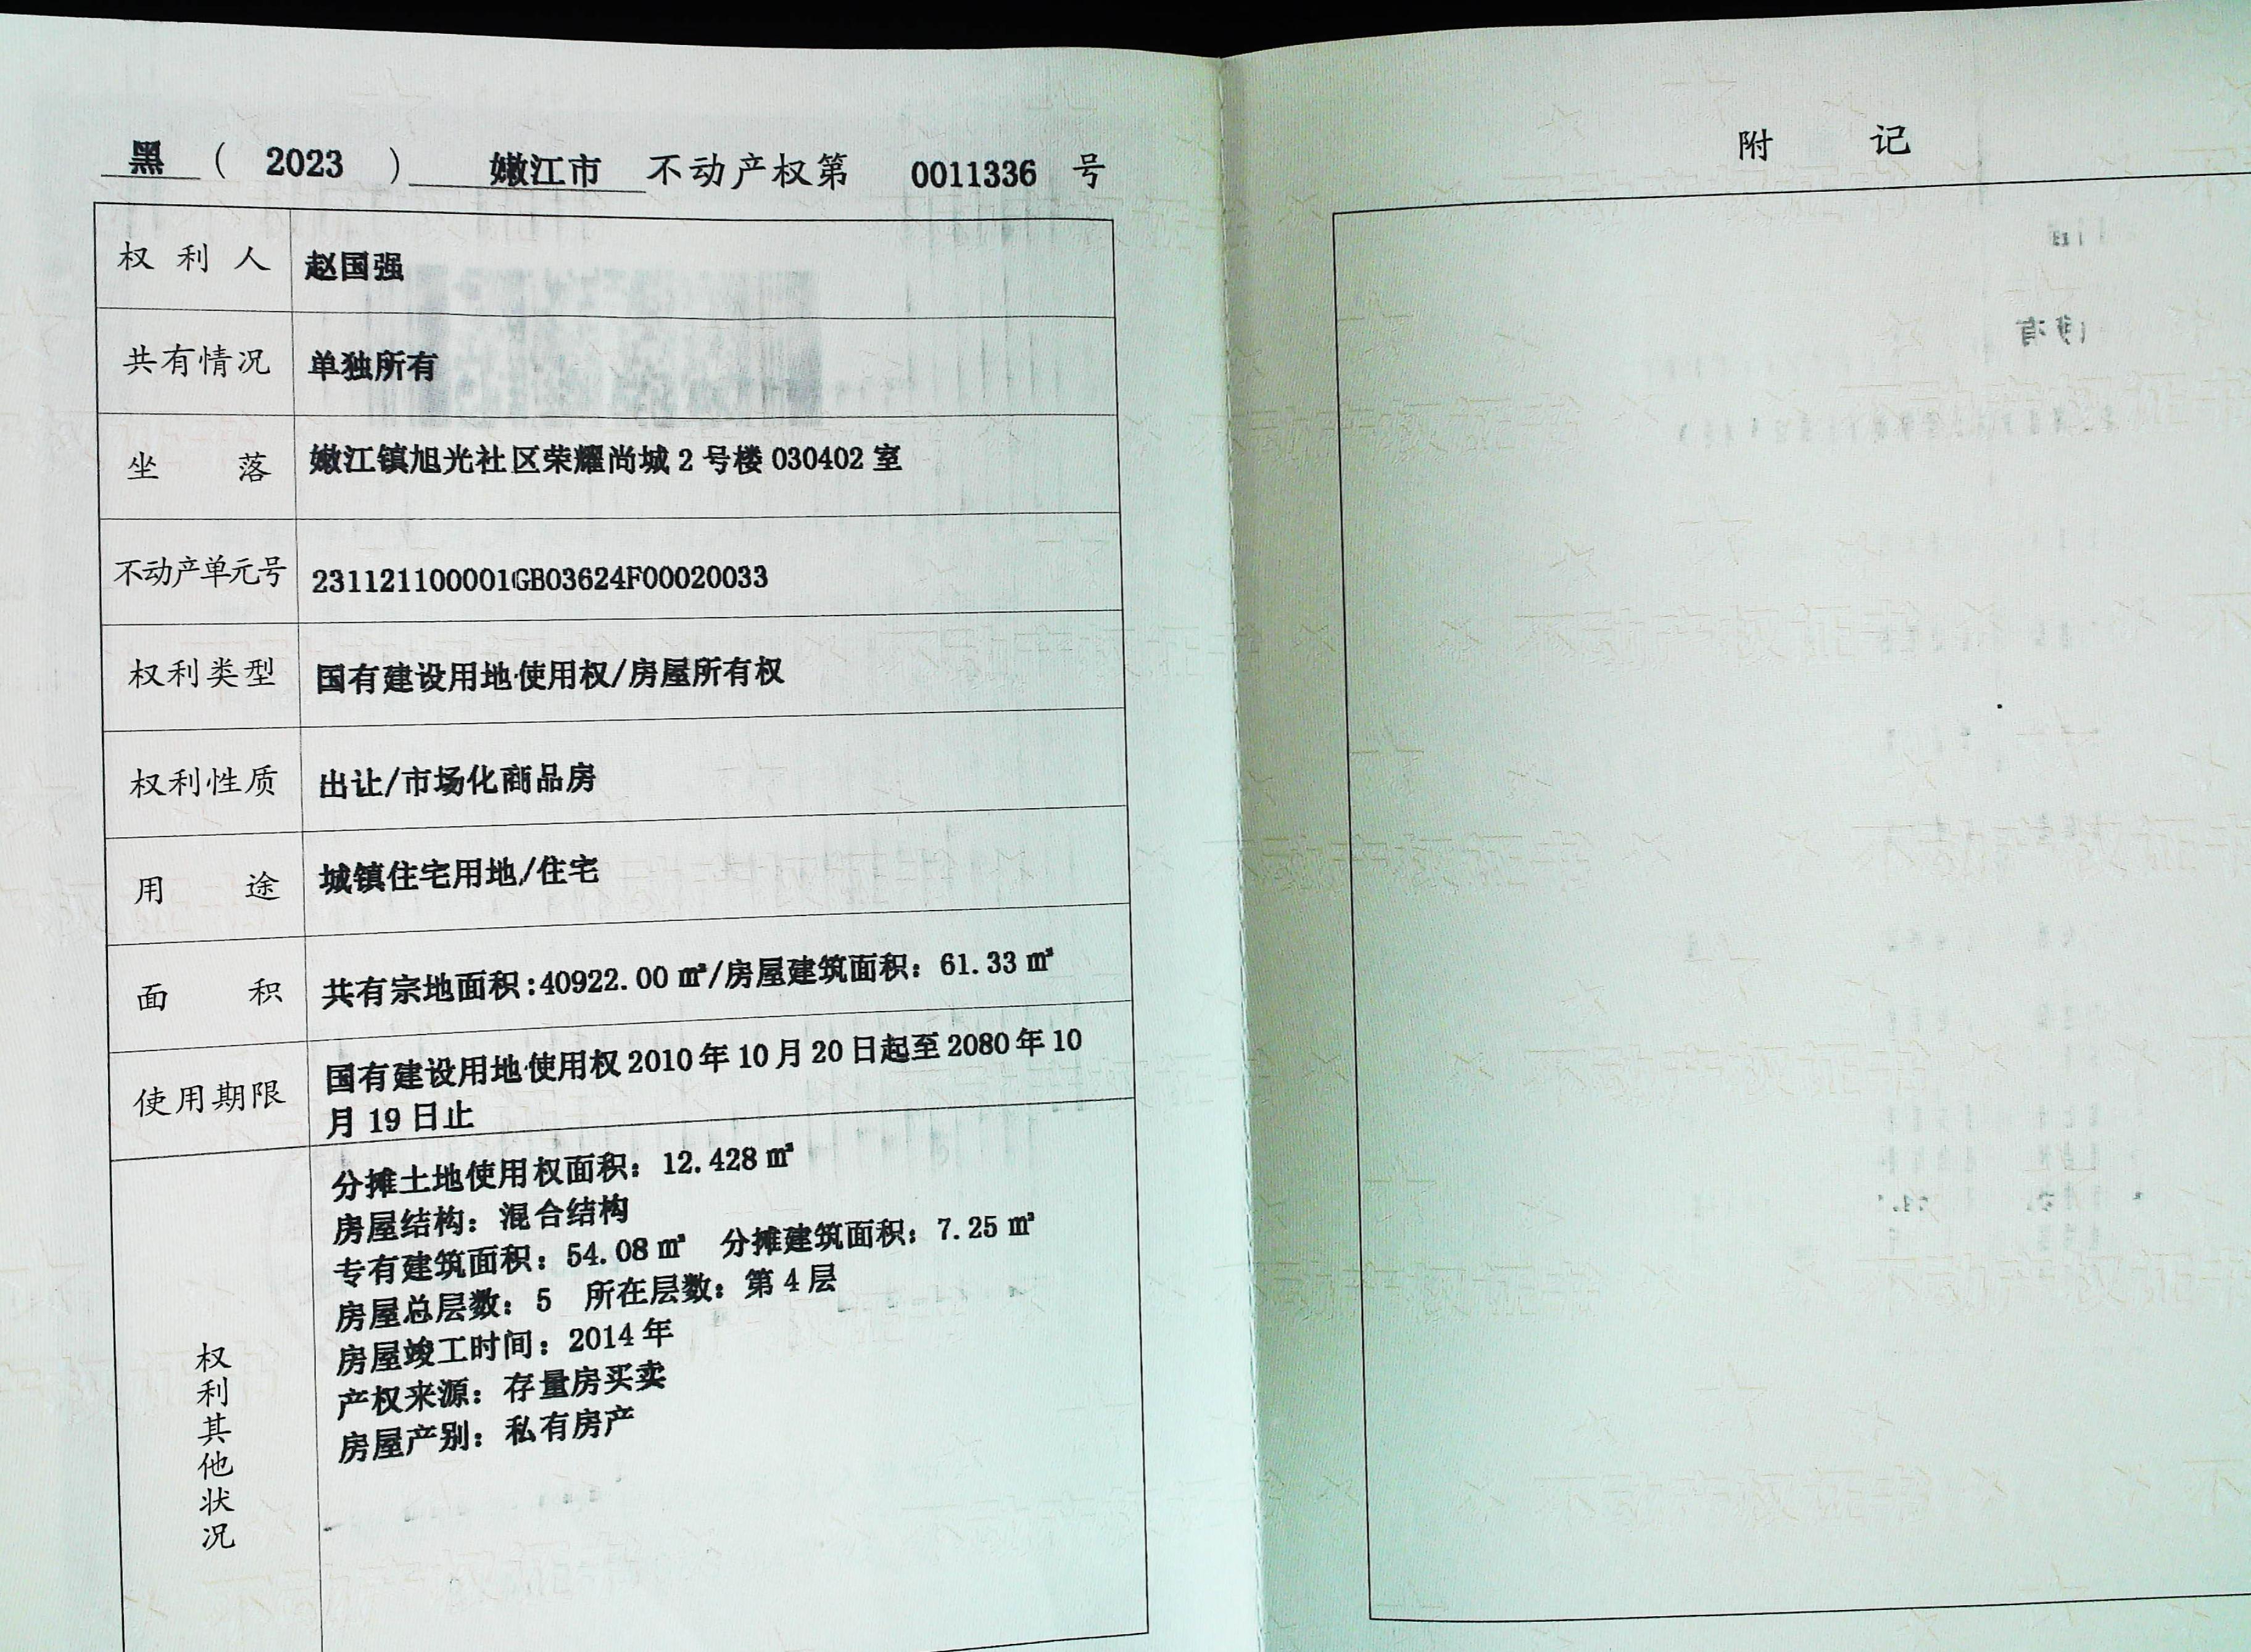 黑 ( 2023 ) 嫩江市 不动产权第 0011336 号
权利人 赵国强
共有情况 单独所有
坐落 嫩江镇旭光社区荣耀尚城 2 号楼 030402 室
不动产单元号 231121100001GB03624F00020033
权利类型 国有建设用地使用权/房屋所有权
权利性质 出让/市场化商品房
用途 城镇住宅用地/住宅
面积 共有宗地面积:40922.00 ㎡/房屋建筑面积: 61.33 ㎡
使用期限 国有建设用地使用权 2010 年 10 月 20 日起至 2080 年 10
月 19 日止
权利其他状况
分摊土地使用权面积: 12.428 ㎡
房屋结构: 混合结构
专有建筑面积: 54.08 ㎡ 分摊建筑面积: 7.25 ㎡
房屋总层数: 5 所在层数: 第 4 层
房屋竣工时间: 2014 年
产权来源: 存量房买卖
房屋产别: 私有房产
附 记